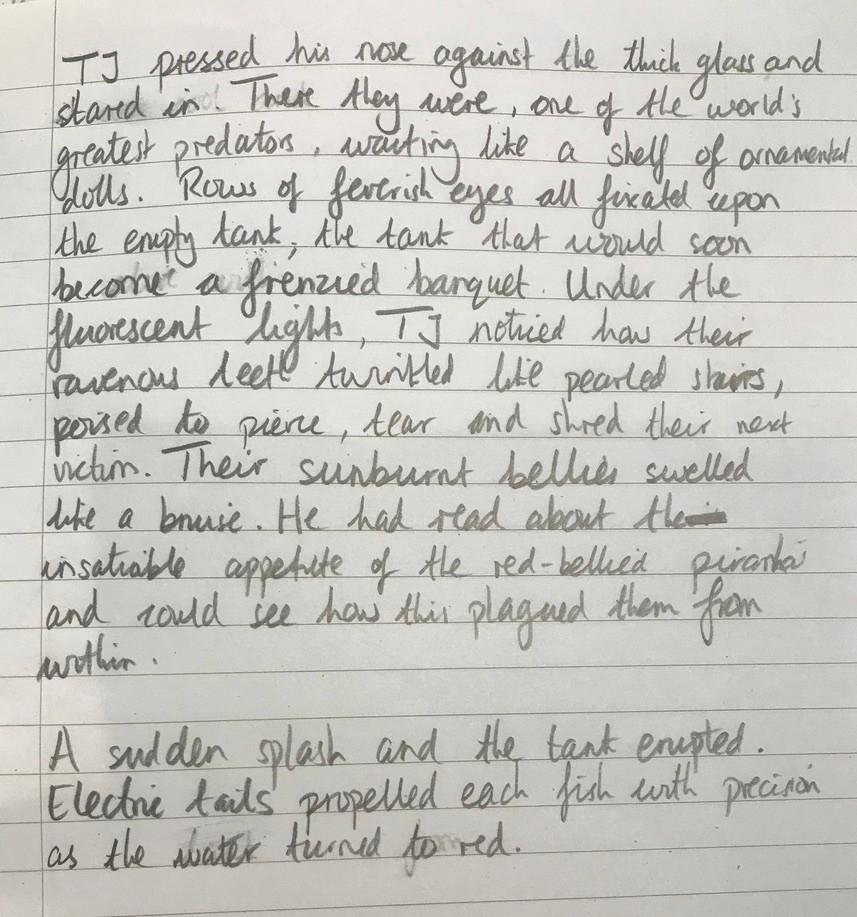 TJ pressed his nose against the thick glass and
stared in. There they were, one of the world's
greatest predators, waiting like a shelf of ornamental
dolls. Rows of feverish eyes all fixated upon
the empty tank; the tank that would soon
become a frenzied banquet. Under the
fluorescent lights, TJ noticed how their
ravenous teeth twinkled like pearled stairs,
poised to pierce, tear and shred their next
victim. Their sunburnt bellies swelled
like a bruise. He had read about the
insatiable appetite of the red-bellied piranha
and could see how this plagued them from
within.
A sudden splash and the tank erupted.
Electric tails propelled each fish with precision
as the water turned to red.